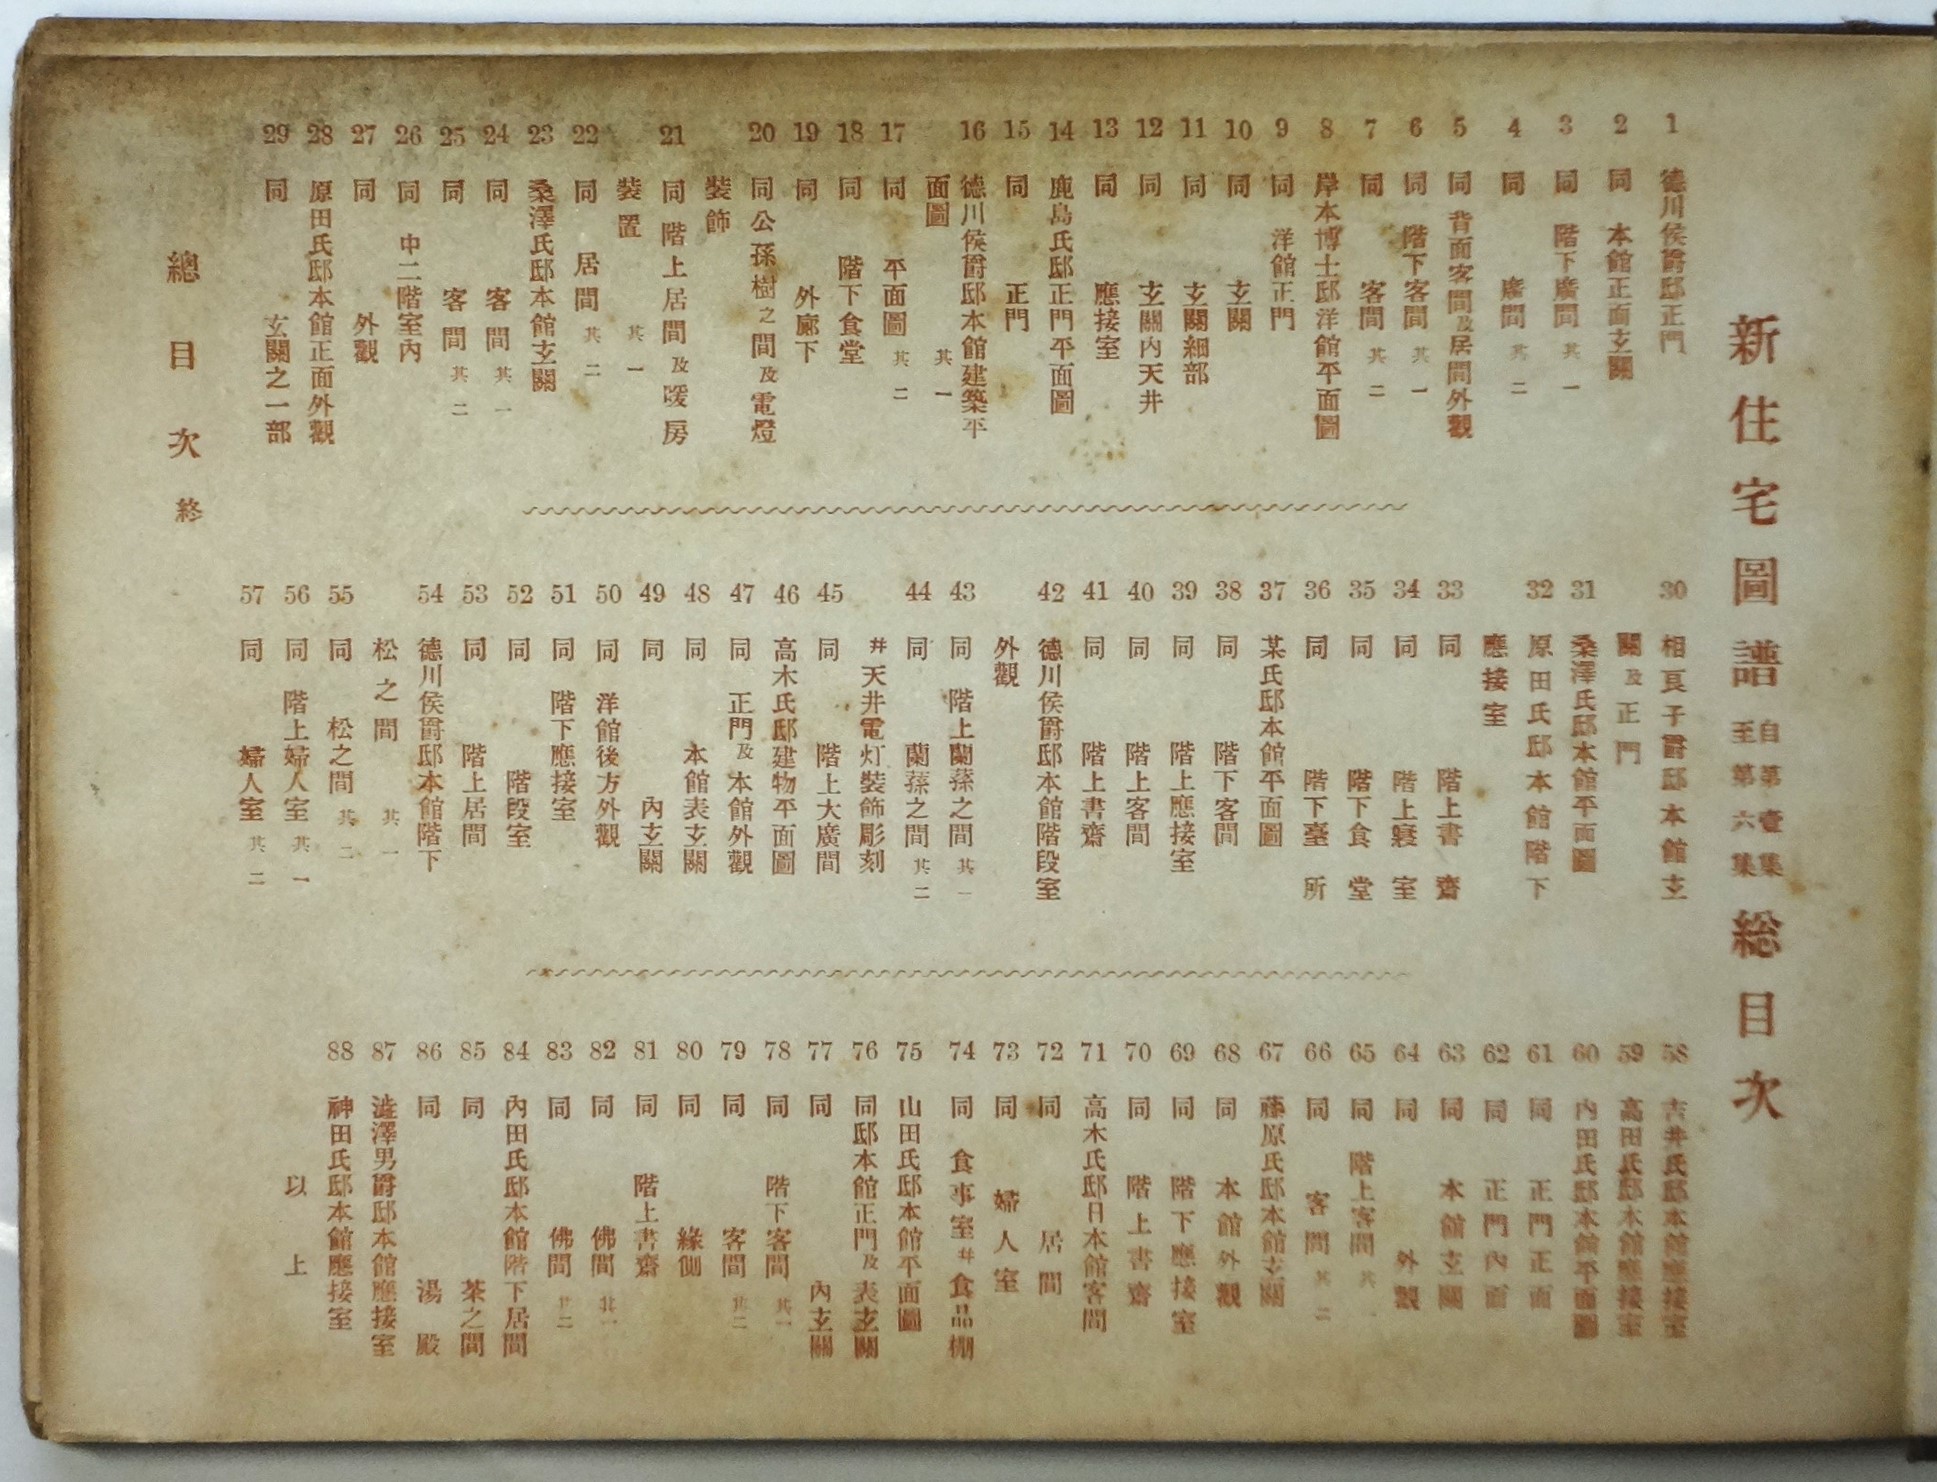 新住宅圖譜 自第壹集 至第六集 総目次
1 德川侯爵邸正門
2 同 本館正面玄關
3 同 階下廣間 其一
4 同 廣間 其二
5 同 背面客間及居間外觀
6 同 階下客間 其一
7 同 客間 其二
8 岸本博士邸洋館平面圖
9 同 洋館正門
10 同 玄關
11 同 玄關細部
12 同 玄關內天井
13 同 應接室
14 鹿島氏邸正門平面圖
15 同 正門
16 德川侯爵邸本館建築平
面圖 其一
17 同 平面圖 其二
18 同 階下食堂
19 同 外廊下
20 同 公孫樹之間及電燈
裝飾
21 同 階上居間及暖房
裝置 其一
22 同 居間 其二
23 桑澤氏邸本館玄關
24 同 客間 其一
25 同 客間 其二
26 同 中二階室內
27 同 外觀
28 原田氏邸本館正面外觀
29 同 玄關之一部
30 相良子爵邸本館玄
關及正門
31 桑澤氏邸本館平面圖
32 原田氏邸本館階下
應接室
33 同 階上書齋
34 同 階上寢室
35 同 階下食堂
36 同 階下臺所
37 某氏邸本館平面圖
38 同 階下客間
39 同 階上應接室
40 同 階上客間
41 同 階上書齋
42 德川侯爵邸本館階段室
外觀
43 同 階上蘭蓀之間 其一
44 同 蘭蓀之間 其二
井天井電灯裝飾彫刻
45 同 階上大廣間
46 高木氏邸建物平面圖
47 同 正門及本館外觀
48 同 本館表玄關
49 同 內玄關
50 同 洋館後方外觀
51 同 階下應接室
52 同 階段室
53 同 階上居間
54 德川侯爵邸本館階下
松之間 其一
55 同 松之間 其二
56 同 階上婦人室 其一
57 同 婦人室 其二
58 吉井氏邸本館應接室
59 高田氏邸本館應接室
60 內田氏邸本館平面圖
61 同 正門正面
62 同 正門內面
63 同 本館玄關
64 同 外觀
65 同 階上客間 其一
66 同 客間 其二
67 藤原氏邸本館玄關
68 同 本館外觀
69 同 階下應接室
70 同 階上書齋
71 高木氏邸日本館客間
72 同 居間
73 同 婦人室
74 同 食事室井食品棚
75 山田氏邸本館平面圖
76 同邸本館正門及表玄關
77 同 內玄關
78 同 階下客間 其一
79 同 客間 其二
80 同 緣側
81 同 階上書齋
82 同 佛間 其一
83 同 佛間 其二
84 內田氏邸本館階下居間
85 同 茶之間
86 同 湯殿
87 澁澤男爵邸本館應接室
88 神田氏邸本館應接室
以上
總目次 終